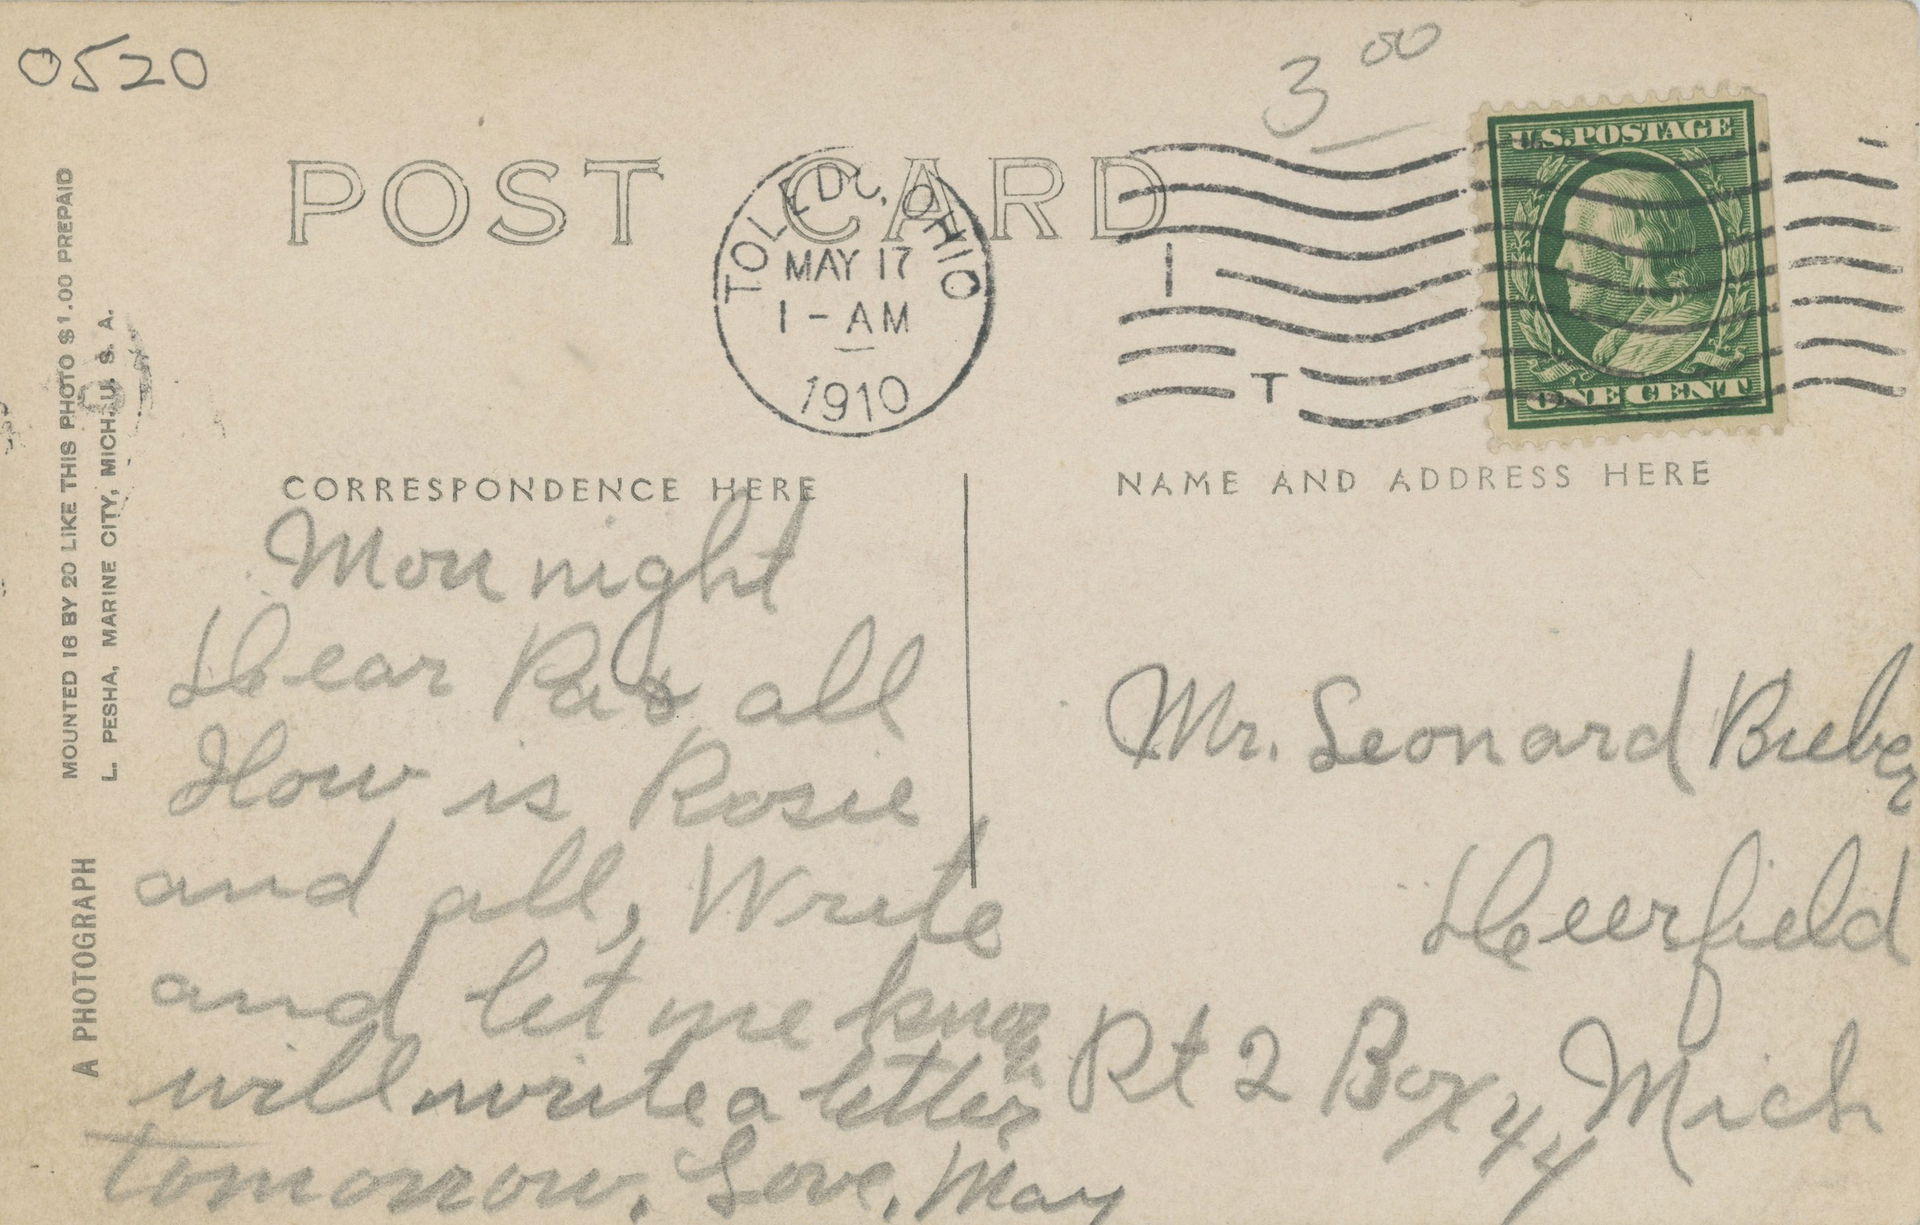 0520
3 00
POST CARD
TOLEDO, OHIO
MAY 17
1 - AM
1910
I
T
U.S. POSTAGE
ONE CENT
MOUNTED 16 BY 20 LIKE THIS PHOTO $1.00 PREPAID
L. PESHA, MARINE CITY, MICH., U. S. A.
A PHOTOGRAPH
CORRESPONDENCE HERE
NAME AND ADDRESS HERE
Mon night
Dear Pa & all
How is Rosie
and all, Write
and let me know
will write a letter
tomorrow. Love, May
Mr. Leonard Bieber
Deerfield
Rt 2 Box 44 Mich